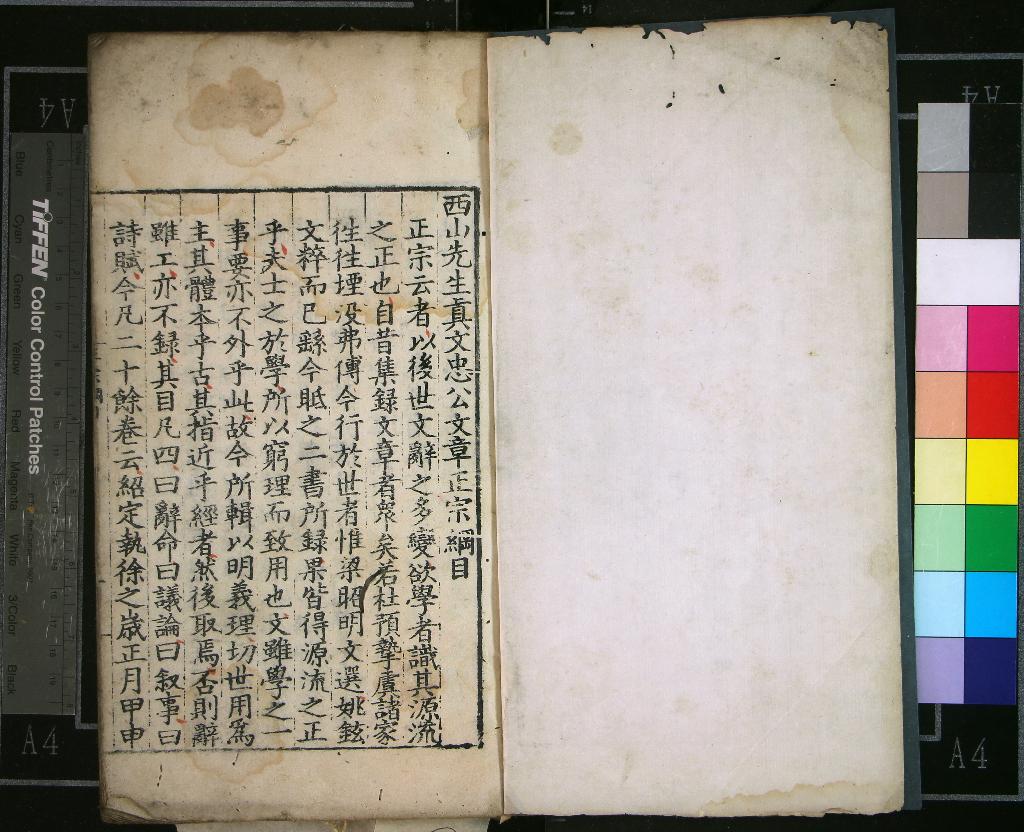 西山先生真文忠公文章正宗綱目
正宗云者以後世文辭之多變欲學者識其源流
之正也自昔集録文章者衆矣若杜預摯虞諸家
徃徃堙没弗傳今行於世者惟梁昭明文選姚鉉
文粹而已繇今眡之二書所録果皆得源流之正
乎夫士之於學所以窮理而致用也文雖學之一
事要亦不外乎此故今所輯以明義理切世用爲
主其體本乎古其指近乎經者然後取焉否則辭
雖工亦不録其目凡四曰辭命曰議論曰叙事曰
詩賦今凡二十餘卷云紹定執徐之歲正月甲申
TIFFEN Color Control Patches
Centimetres
Inches
Blue
Cyan
Green
Yellow
Red
Magenta
White
3/Color
Black
A4
A4
A4
A4